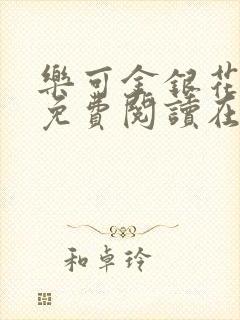 樂可金銀花
免費閱讀在
和卓玲